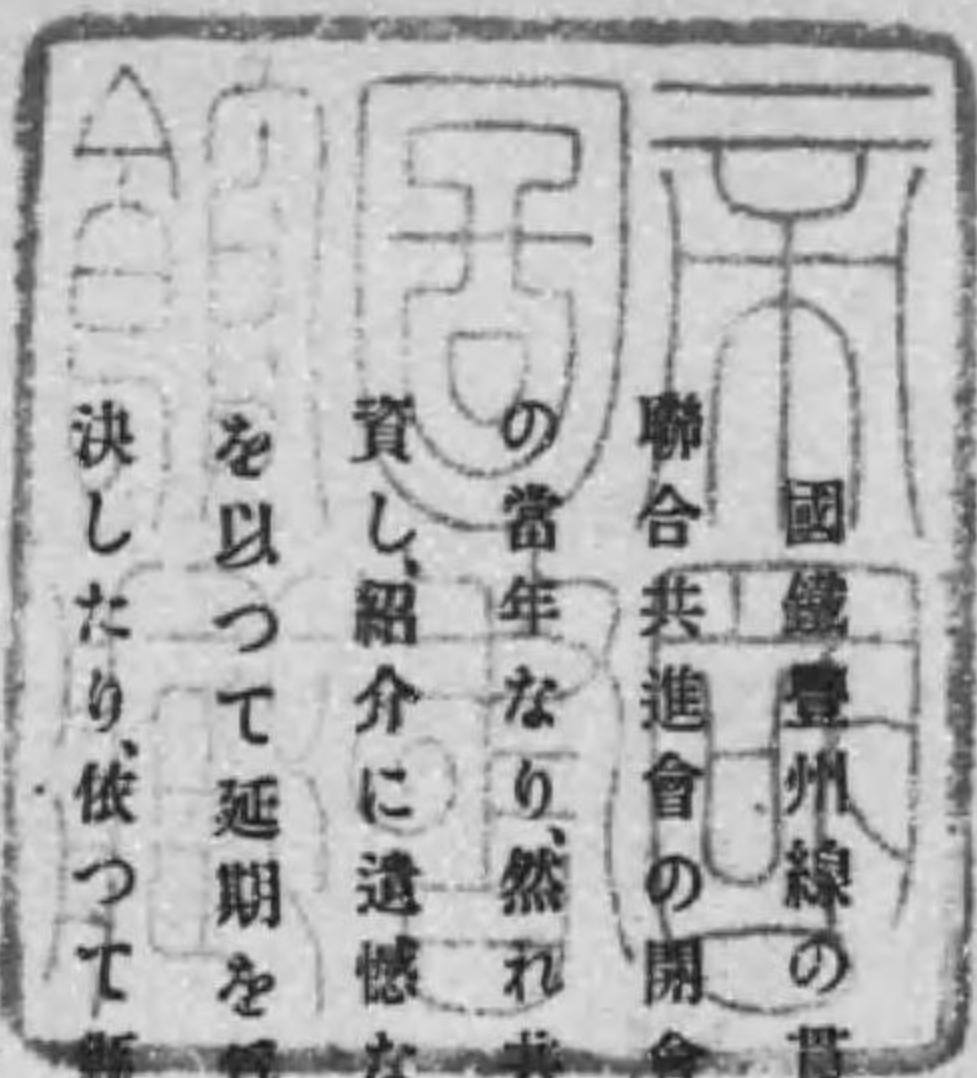 國鐵豐州線の貫
聯合共進會の開會
の當年なり、然れ共
資し、紹介に遺憾な
を以つて延期を
決したり、依つて